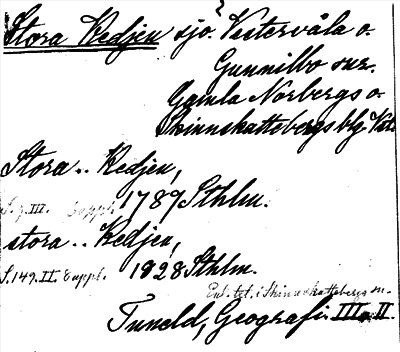 Stora Kedjen sjö? Vestervåla o.
Gunnilbo snr.
Gamla Norbergs o.
Skinnskattebergs blg Vstm.
Stora .. Kedjen,
S. 7. III. Suppl. 1789 Sthlm.
stora .. Kedjen,
S. 149. II. Suppl. 1928 Sthlm.
Enl. tct. i Skinnskattebergs sn.
Tuneld, Geografi. III o. II.